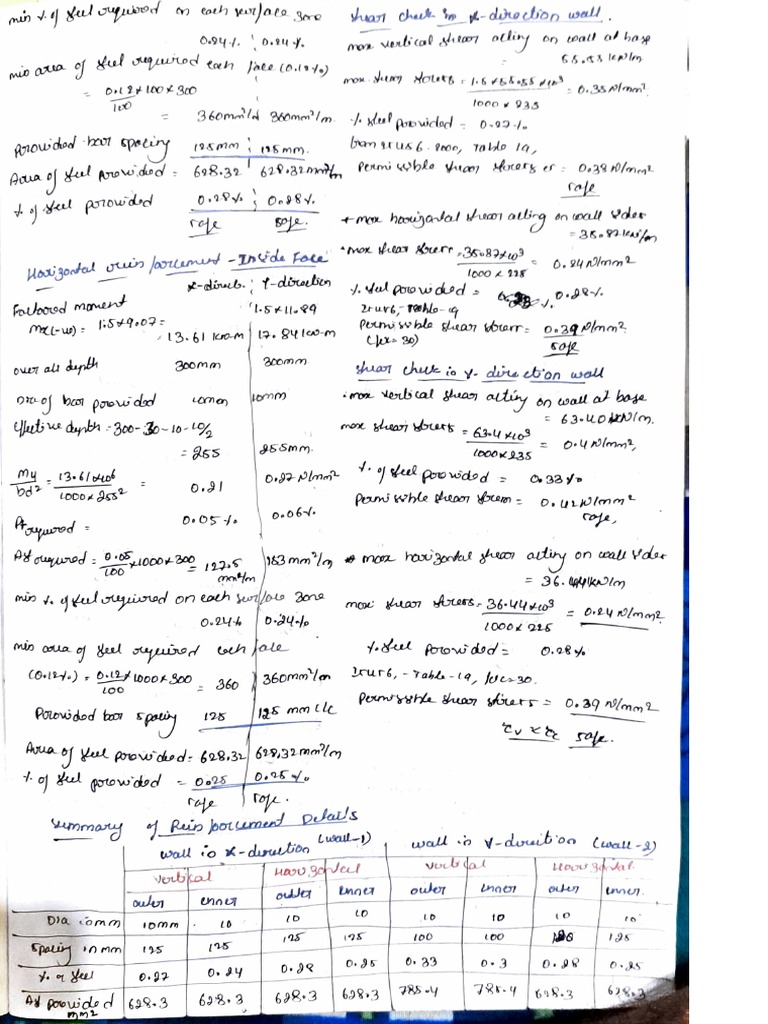 min % of steel required on each surface zone
0.24% ; 0.24%
min area of steel required each face (0.12%)
= 0.12/100 × 100 × 300
= 360mm²/d 360mm²/m
Provided bar spacing 125mm ; 125mm.
Area of steel provided = 628.32 628.32mm²/m
% of steel provided 0.28% ; 0.28%
safe safe.
Horizontal reinforcement - Inside Face
x-direct. ; Y-direction
Factored moment 1.5×11.89
Mx(-ve) = 1.5×9.07 =
13.61 kN-m 17.84kN-m
over all depth 300mm 300mm
Dia of bar provided 10mm 10mm
Effective depth = 300-30-10-10/2
= 255 255mm.
Mu/bd² = 13.61×10⁶/1000×255² = 0.21 0.27N/mm²
Pt required = 0.05% 0.06%
Ast required = 0.05/100 × 1000×300 = 127.5 mm²/m 153mm²/m
min % of steel required on each surface zone
0.24% 0.24%
min area of steel required each face
(0.12%) = 0.12/100 × 1000×300 = 360 360mm²/m
Provided bar spacing 125 125 mm c/c
Area of steel provided = 628.32 628.32mm²/m
% of steel provided = 0.25 0.25%
safe safe.
shear check in x-direction wall.
max vertical shear acting on wall at base
= 55.55 kN/m
max shear stress = 1.5×55.55×10³/1000×235 = 0.35N/mm²
% steel provided = 0.27%
Permissible shear stress = 0.38N/mm²
safe
+ max horizontal shear acting on wall sides
= 35.87kN/m
• max shear stress = 35.87×10³/1000×225 = 0.24N/mm²
% steel provided = 0.28%
Permissible shear stress = 0.39N/mm²
(fck=30) safe
shear check in Y-direction wall
• max vertical shear acting on wall at base
= 63.40kN/m.
max shear stress = 63.4×10³/1000×235 = 0.4N/mm²,
% of steel provided = 0.33%
Permissible shear stress = 0.42N/mm²
safe,
* max horizontal shear acting on wall sides
= 36.44kN/m
max shear stress = 36.44×10³/1000×225 = 0.24N/mm²
% steel provided = 0.28%
Table-19, fck=30.
Permissible shear stress = 0.39N/mm²
τv < τc safe.
Summary of Reinforcement Details
wall in X-direction (wall-1) wall in Y-direction (wall-2)
vertical Horizontal vertical Horizontal
outer inner outer inner outer inner outer inner.
Dia in mm 10mm 10 10 10 10 10 10 10
Spacing in mm 125 125 125 125 100 100 125 125
% of steel 0.27 0.24 0.28 0.25 0.33 0.3 0.28 0.25
Ast provided mm² 628.3 628.3 628.3 628.3 785.4 785.4 628.3 628.3